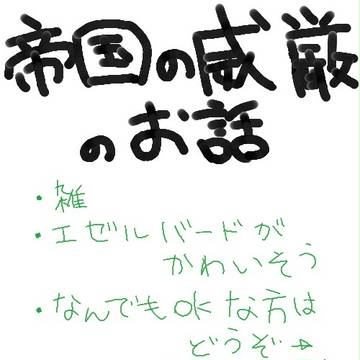 帝国の威厳
のお話
・雑
・エゼルバードが
かわいそう
・なんでもOKな方は
どうぞ→